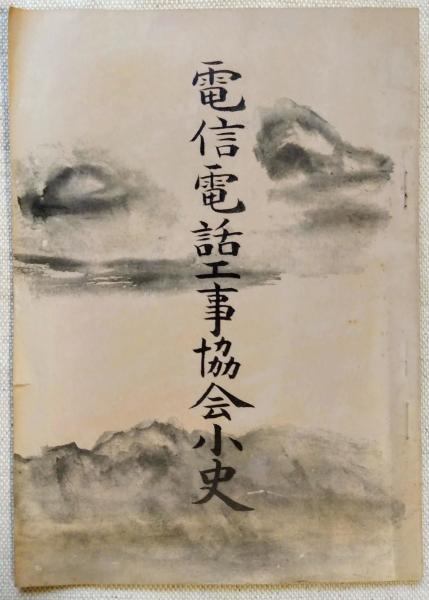 電信電話工事協会小史